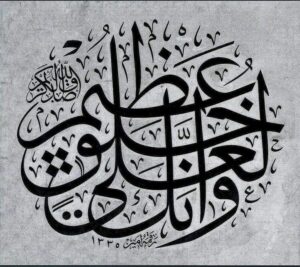 وَإِنَّكَ لَعَلى خُلُقٍ عَظِيمٍ
صدق الله
١٣٣٥